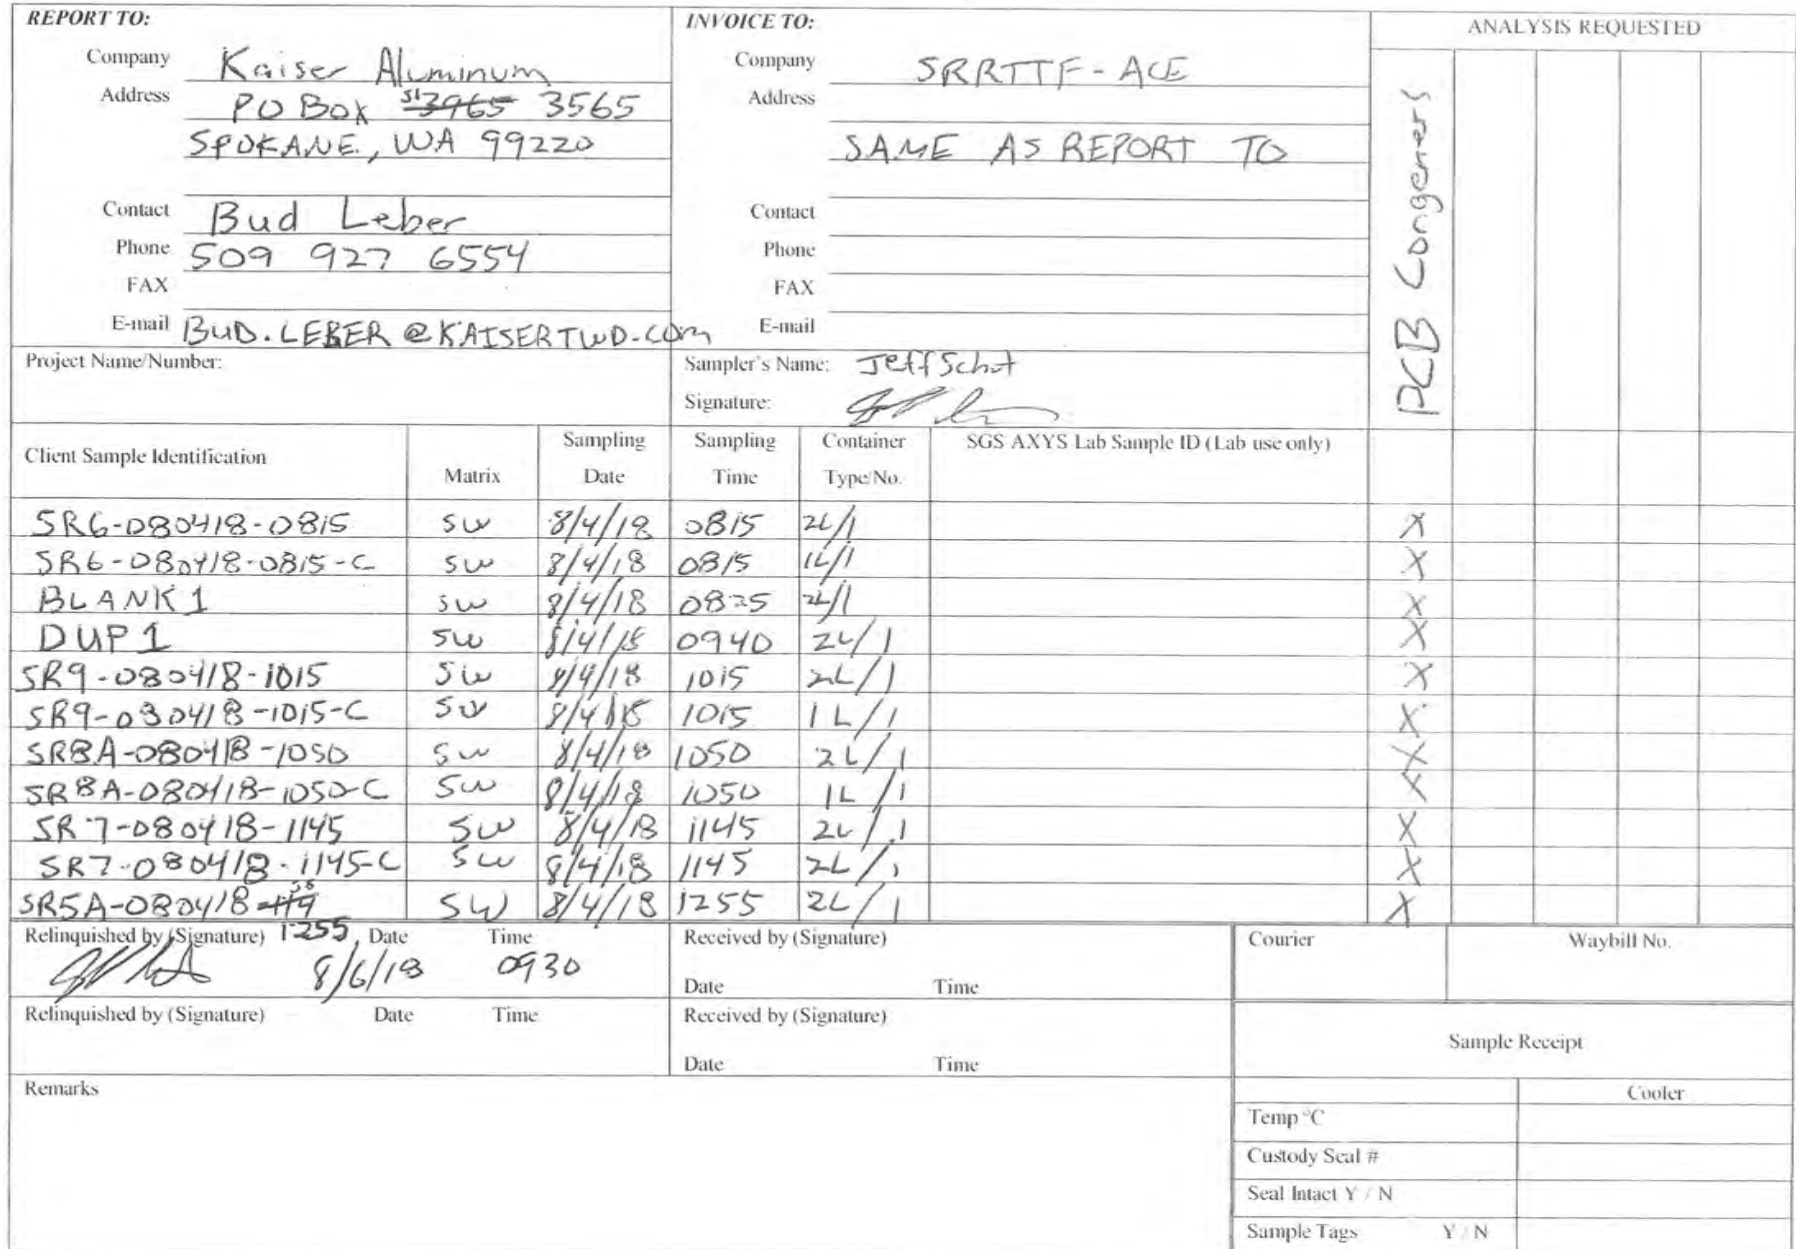 REPORT TO:
Company Kaiser Aluminum
Address PO Box 3965 3565
SPOKANE, WA 99220
Contact Bud Leber
Phone 509 927 6554
FAX
E-mail BUD.LEBER@KAISERTWD.COM
INVOICE TO:
Company SRRTTF-ACE
Address
SAME AS REPORT TO
Contact
Phone
FAX
E-mail
ANALYSIS REQUESTED
PCB Congeners
Project Name/Number:
Sampler's Name: Jeff Schut
Signature:
Client Sample Identification Matrix Sampling Date Sampling Time Container Type/No. SGS AXYS Lab Sample ID (Lab use only)
SR6-080418-0815 SW 8/4/18 0815 2L/1 X
SR6-080418-0815-C SW 8/4/18 0815 1L/1 X
BLANK 1 SW 8/4/18 0825 2L/1 X
DUP 1 SW 8/4/18 0940 2L/1 X
SR9-080418-1015 SW 8/4/18 1015 2L/1 X
SR9-080418-1015-C SW 8/4/18 1015 1L/1 X
SR8A-080418-1050 SW 8/4/18 1050 2L/1 X
SR8A-080418-1050-C SW 8/4/18 1050 1L/1 X
SR7-080418-1145 SW 8/4/18 1145 2L/1 X
SR7-080418-1145-C SW 8/4/18 1145 2L/1 X
SR5A-080418- SW 8/4/18 1255 2L/1 X
1255
Relinquished by (Signature) Date Time
8/6/18 0930
Received by (Signature)
Date Time
Courier Waybill No.
Relinquished by (Signature) Date Time
Received by (Signature)
Date Time
Sample Receipt
Remarks
Cooler
Temp °C
Custody Seal #
Seal Intact Y / N
Sample Tags Y / N